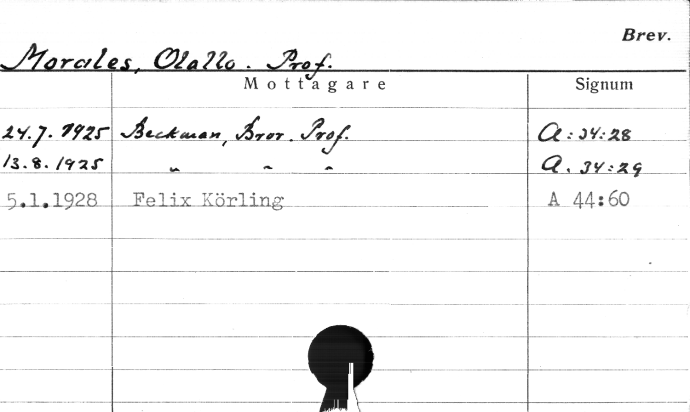 Brev.
Morales, Olallo. Prof.
Mottagare Signum
24.7.1925 Beckman, Bror. Prof. A:34:28
13.8.1925 " " " A.34:29
5.1.1928 Felix Körling A 44:60